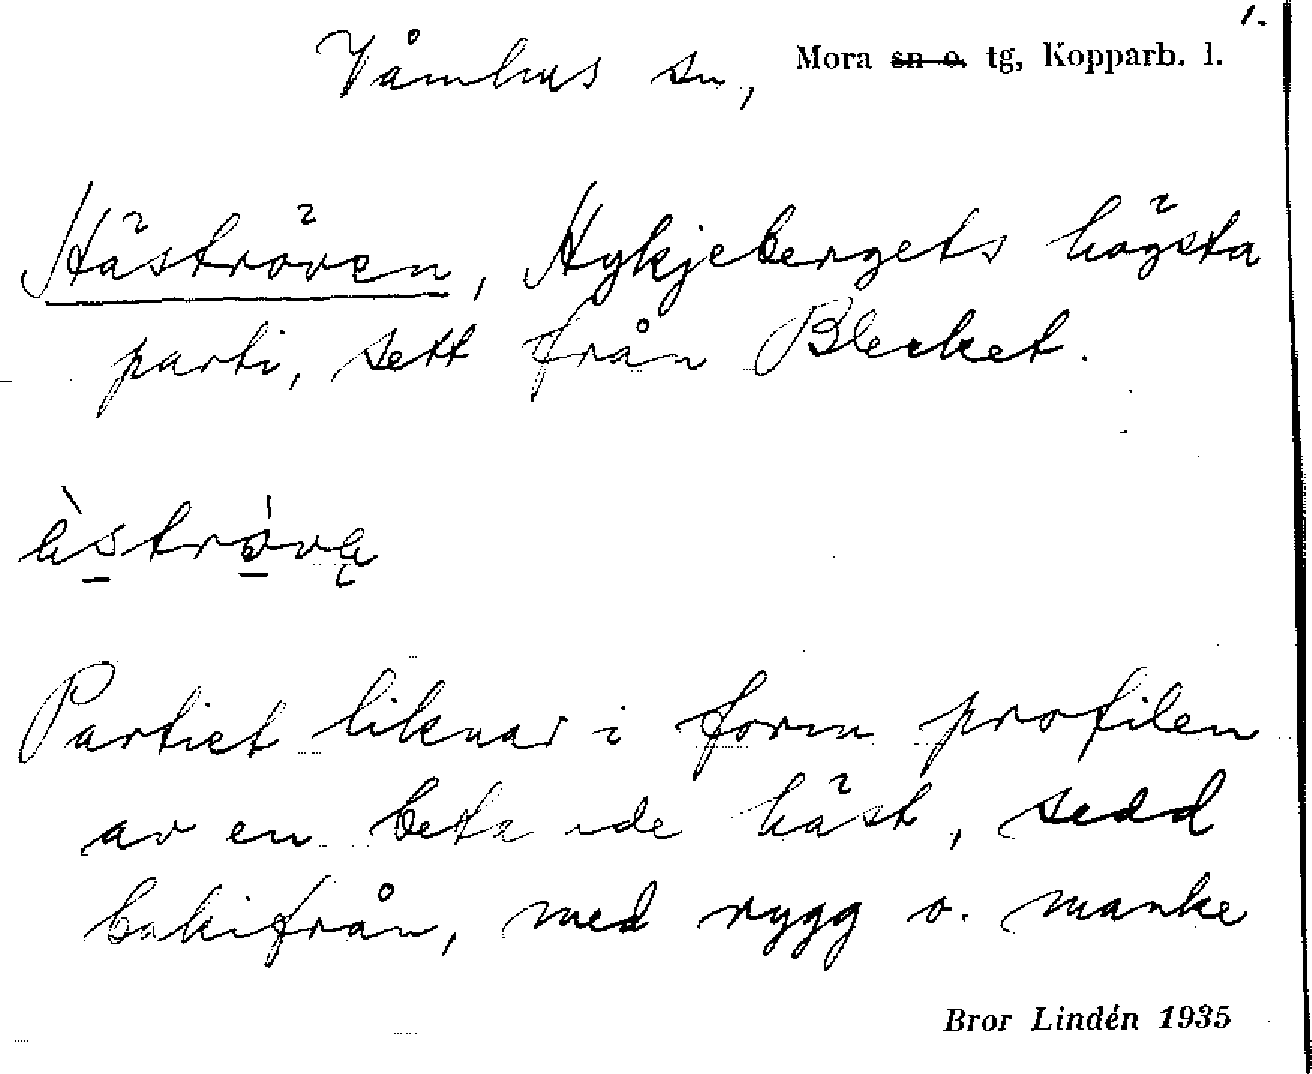 1.
Våmhus sn, Mora sn o. tg, Kopparb. l.
Häströven, Hykjebergets högsta
parti, sett från Blecket.
Partiet liknar i form profilen
av en betande häst, sedd
bakifrån, med rygg o. manke
Bror Lindén 1935